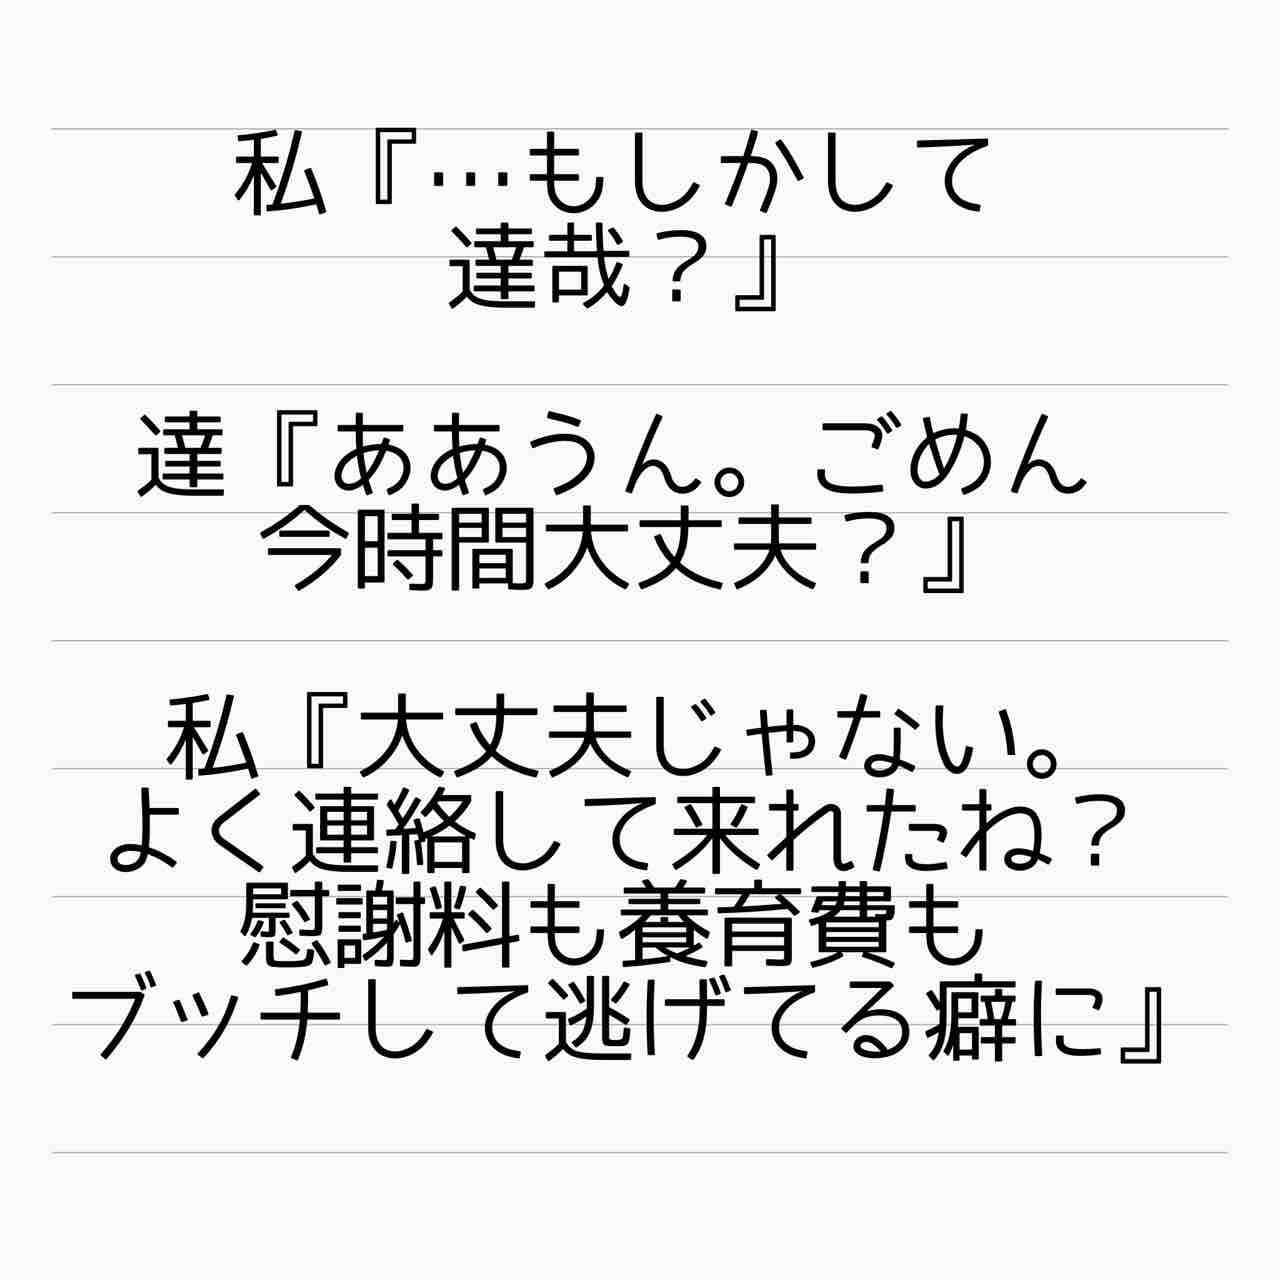 私『…もしかして
達哉？』
達『ああうん。ごめん
今時間大丈夫？』
私『大丈夫じゃない。
よく連絡して来れたね？
慰謝料も養育費も
ブッチして逃げてる癖に』